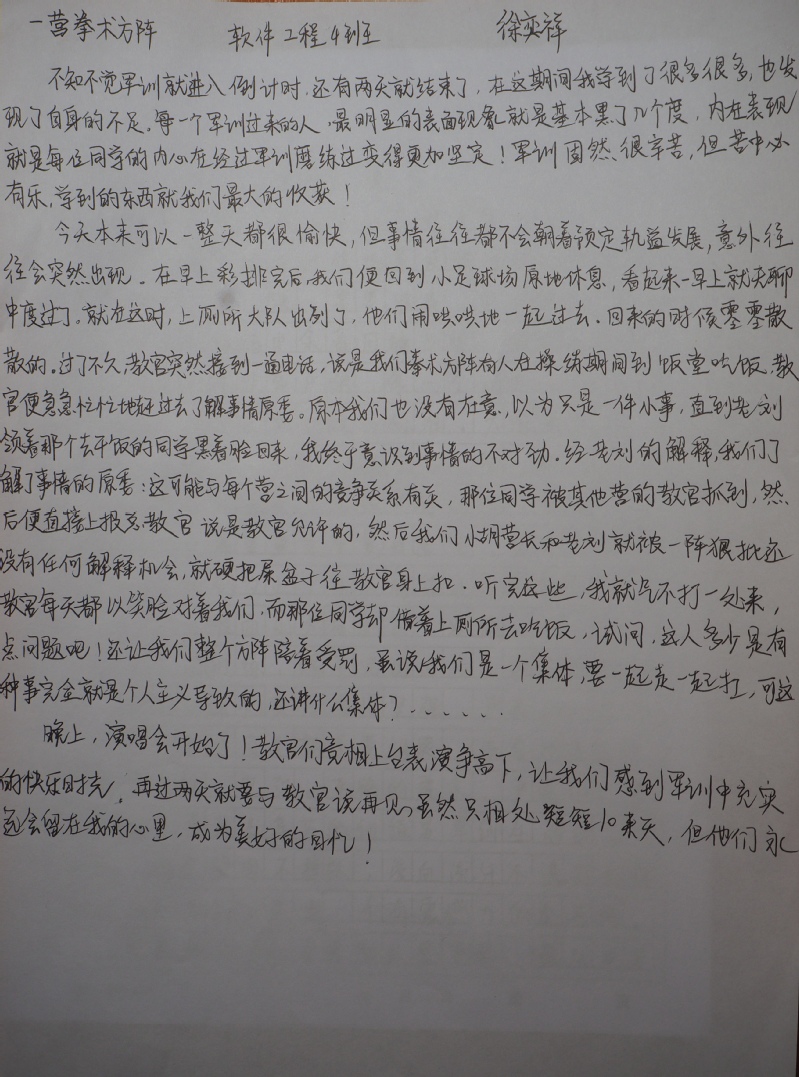 一营拳术方阵 软件工程4班 徐奕祥
不知不觉军训就进入倒计时,还有两天就结束了,在这期间我学到了很多很多,也发
现了自身的不足。每一个军训过来的人,最明显的表面现象就是基本黑了几个度,内在表现
就是每位同学的内心在经过军训磨练过变得更加坚定!军训固然很辛苦,但苦中必
有乐,学到的东西就我们最大的收获!
今天本来可以一整天都很愉快,但事情往往都不会朝着预定轨迹发展,意外往
往会突然出现。在早上彩排完后,我们便回到小足球场原地休息,看起来一早上就天聊
中度过了。就在这时,上厕所大队出列了,他们闹哄哄地一起过去、回来的时候零零散
散的。过了不久,教官突然接到一通电话,说是我们拳术方阵有人在操练期间到饭堂吃饭,教
官便急急忙忙地赶过去了解事情原委。原本我们也没有在意,以为只是一件小事,直到老刘
领着那个去干饭的同学黑着脸回来,我终于意识到事情的不对劲。经老刘的解释,我们了
解了事情的原委:这可能与每个营之间的竞争关系有关,那位同学被其他营的教官抓到,然
后便直接上报总教官说是教官允许的,然后我们小胡营长和老刘就被一阵狠批还
没有任何解释机会,就硬把屎盆子往教官身上扣。听完这些,我就气不打一处来,
教官每天都以笑脸对着我们,而那位同学却借着上厕所去吃饭,试问,这人多少是有
点问题吧!还让我们整个方阵陪着受罚,虽说我们是一个集体,要一起走一起扛,可这
种事完全就是个人主义导致的,还讲什么集体?......
晚上,演唱会开始了!教官们竞相上台表演争高下,让我们感到军训中充实
的快乐时光。再过两天就要与教官说再见,虽然只相处短短10来天,但他们永
远会留在我的心里,成为美好的回忆!